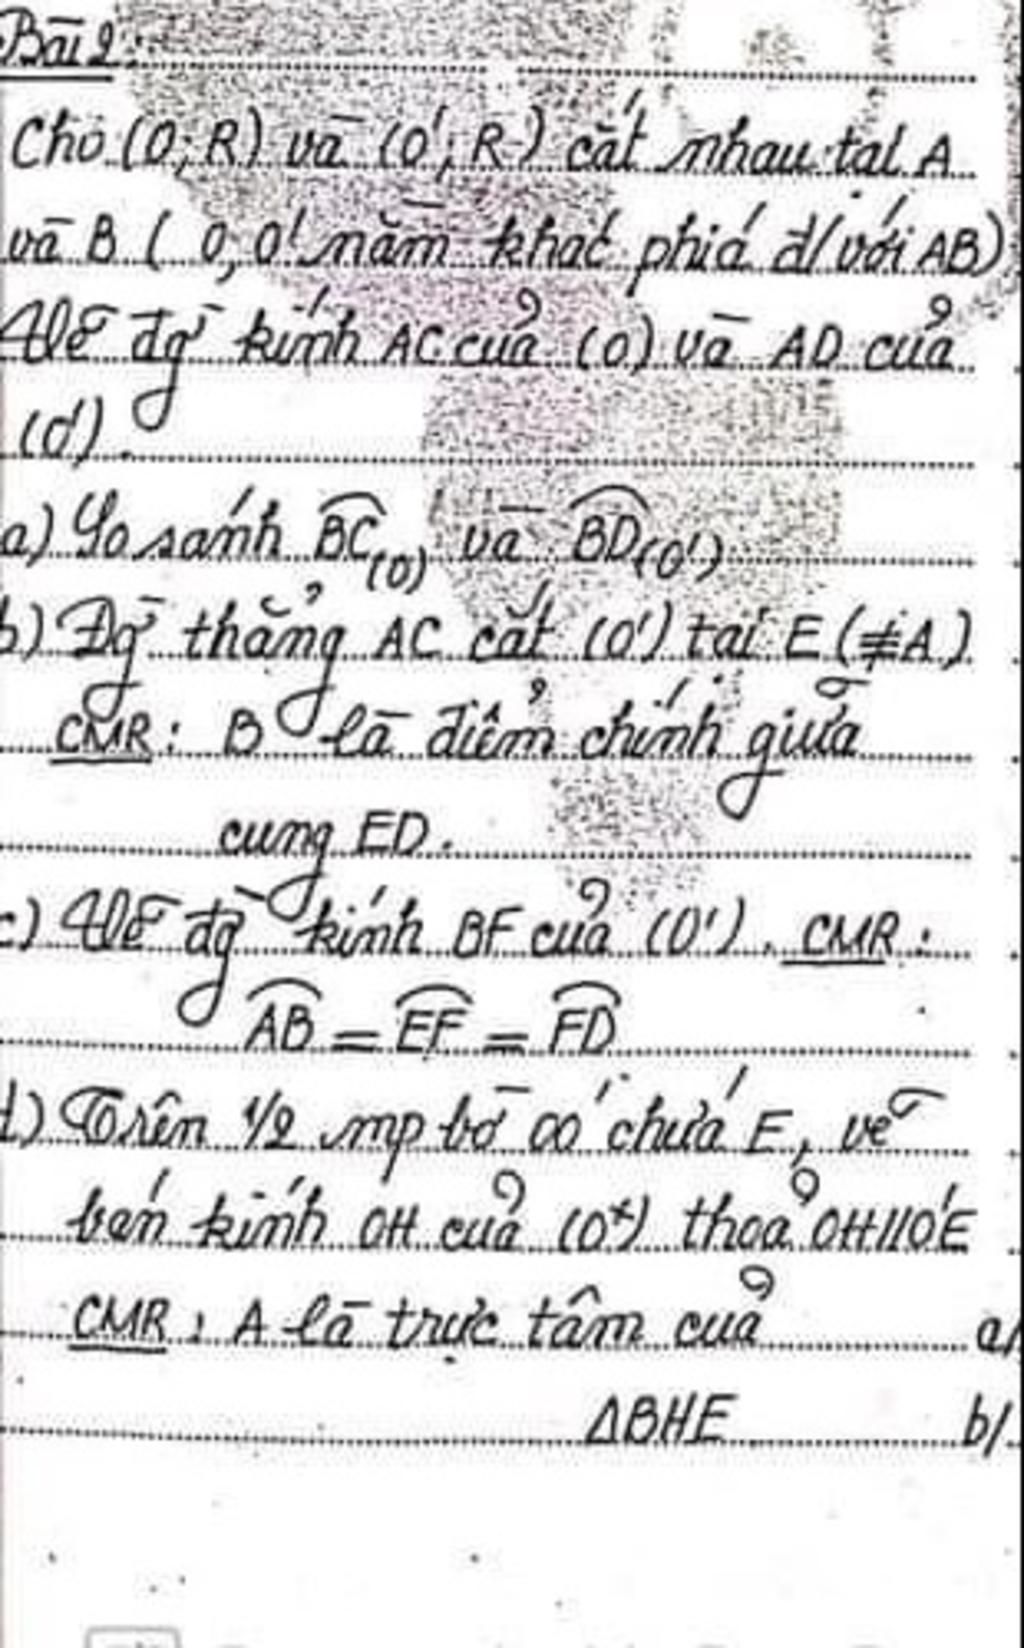 Bài 2:
Cho (O; R) và (O'; R) cắt nhau tại A
và B ( O, O' nằm khác phiá đ/với AB)
Vẽ đg̀ kính AC của (O) và AD của
(O').
a) So sánh BC(O) và BD(O')
b) Đg̀ thẳng AC cắt (O') tại E (≠A)
CMR: B là điểm chính giữa
cung ED.
c) Vẽ đg̀ kính BF của (O'). CMR:
AB = EF = FD
d) Trên 1/2 mp bờ OO' chứa E, vẽ
bán kính OH của (O) thoả OH//O'E
CMR: A là trực tâm của
a/
ΔBHE
b/